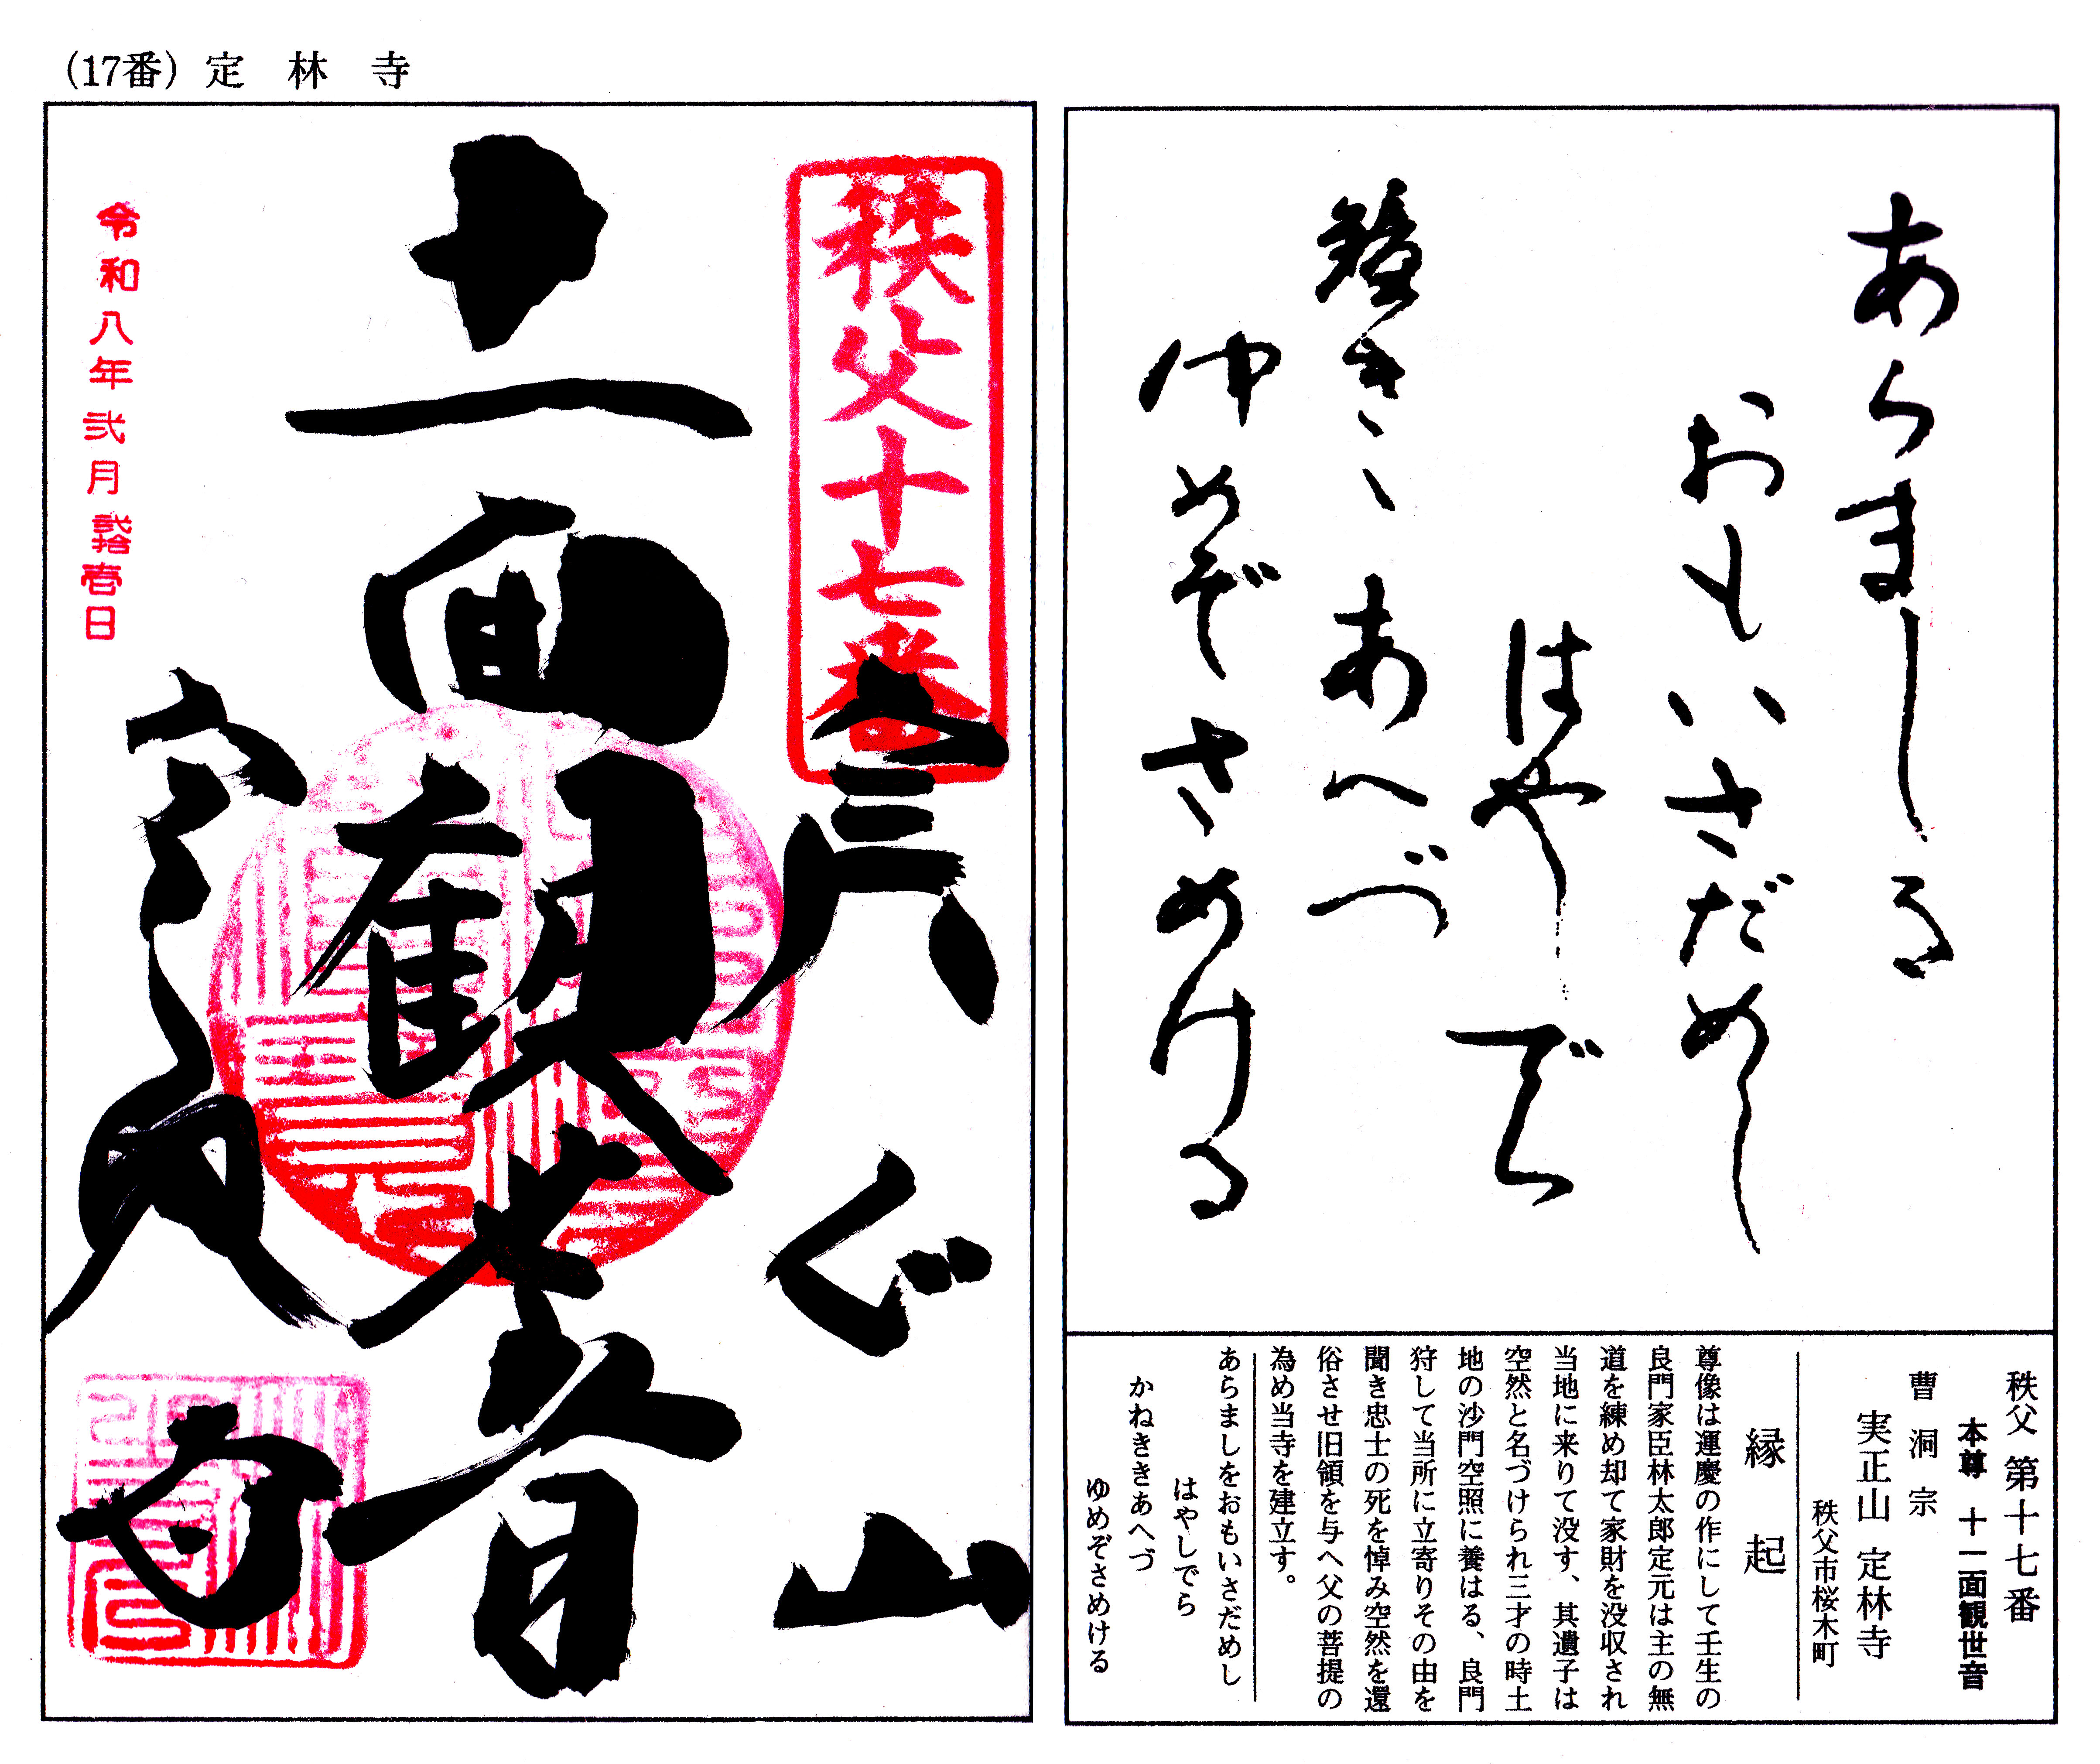 (17番) 定林寺
秩父十七番
実正山
十一面観世音
定林寺
令和八年弐月弐拾壱日
あらましを
おもいさだめし
はやしでら
鐘きゝあへづ
ゆめぞさめける
秩父 第十七番
本尊 十一面観世音
曹洞宗
実正山 定林寺
秩父市桜木町
縁起
尊像は運慶の作にして壬生の
良門家臣林太郎定元は主の無
道を練め却て家財を没収され
当地に来りて没す、其遺子は
空然と名づけられ三才の時土
地の沙門空照に養はる、良門
狩して当所に立寄りその由を
聞き忠士の死を悼み空然を還
俗させ旧領を与へ父の菩提の
為め当寺を建立す。
あらましをおもいさだめし
はやしでら
かねききあへづ
ゆめぞさめける